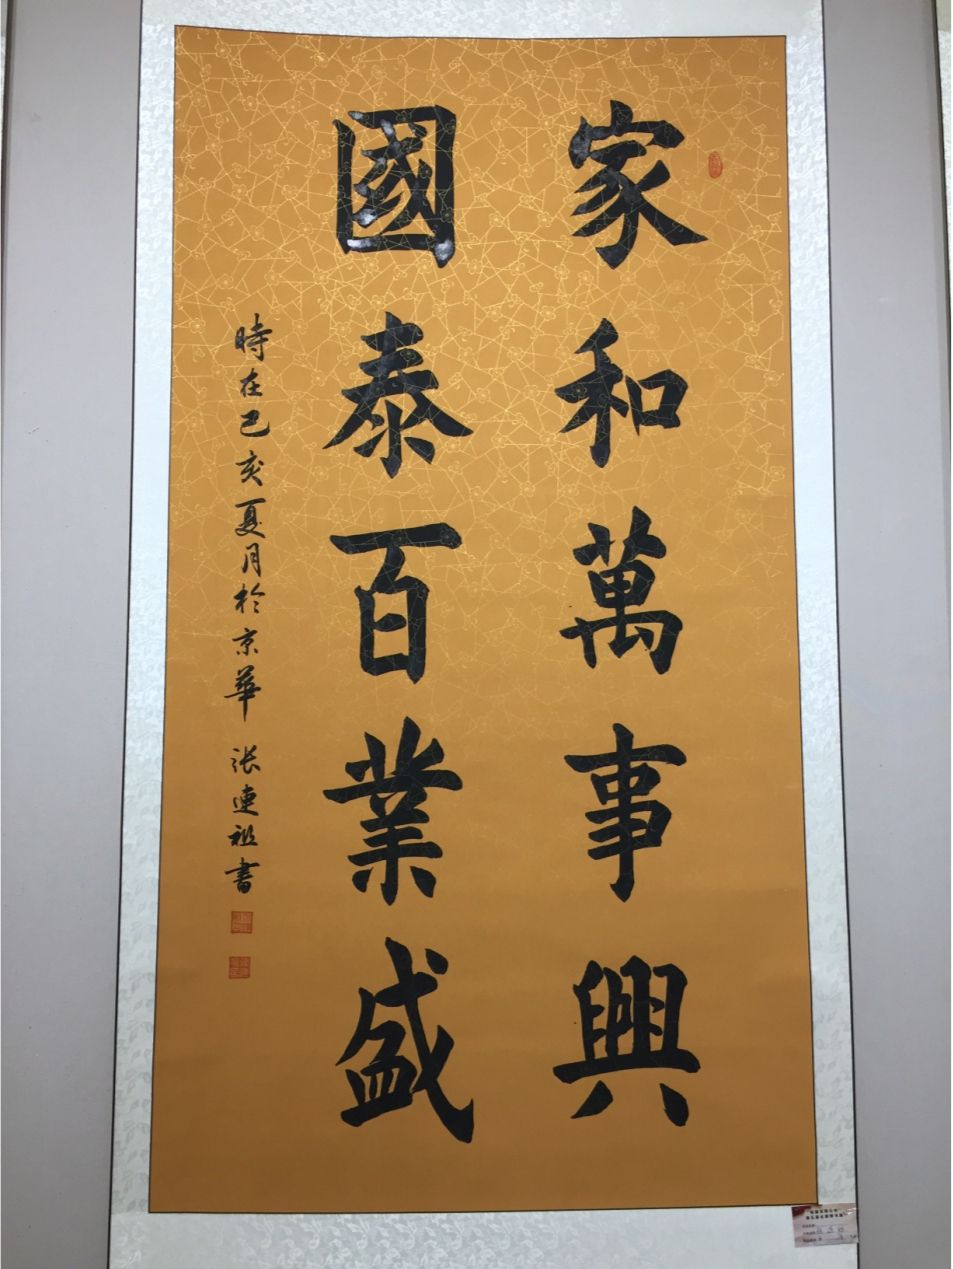 家和萬事興
國泰百業盛
時在己亥夏月於京華 张連祖書